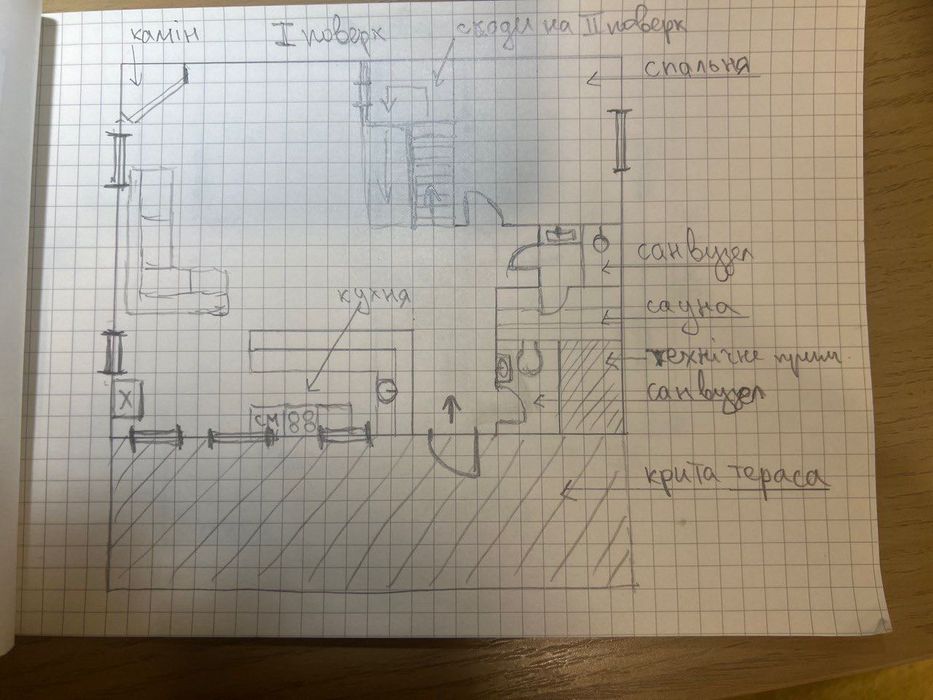 камін
I поверх
сходи на II поверх
спальня
санвузел
кухня
сауна
технічне прим.
санвузел
X
см
крита тераса